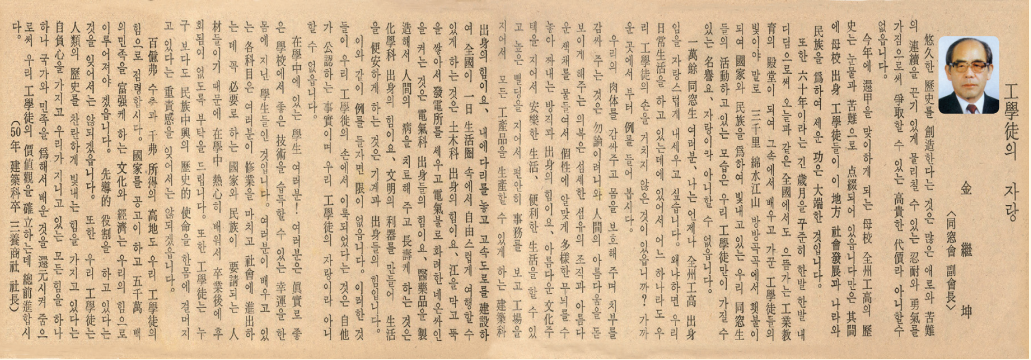 工學徒의 자랑
金 繼 坤
<同窓會 副會長>
悠久한 歷史를 創造한다는 것은 많은 애로와 苦難
의 連續을 끈기 있게 물리칠 수 있는 忍耐와 勇氣를
가짐으로써 爭取할 수 있는 高貴한 代價라 아니할수
없읍니다.
今年에 還甲을 맞이하게 되는 母校 全州工高의 歷
史는 눈물과 苦難으로 點綴되어 있읍니다만은 其間
에 母校 出身 工學徒들이 이 地方 社會發展과 나라와
民族을 爲하여 세운 功은 大端한 것입니다.
또한 六十年이라는 긴 歲月을 꾸준히 한발 한발 내
디딤으로써 오늘과 같은 全國에서도 으뜸가는 工業敎
育의 殿堂이 되었고 그속에서 배우고 가꾼 工學徒들의
빛이야말로 三千里 錦水江山 방방곡곡에서 횃불이
되여 國家와 民族을 爲하여 빛내고 있는 우리 同窓生
들의 活動하고 있는 모습은 우리 工學徒만이 가질수
있는 名譽요, 자랑이라 아니할 수 없읍니다.
一萬餘 同窓生 여러분, 나는 언제나 全州工高 出身
임을 자랑스럽게 내세우고 싶습니다. 왜냐하면 우리
日常生活을 하고 있는데 있어서 어느 하나라도 우
리 工學徒의 손을 거치지 않은 것이 있읍니까? 가까
운 곳에서부터 例를 들어 봅시다.
우리의 肉體를 감싸주고 몸을 보호해 주며 치부를
감싸 주는 것은 勿論이려니와 人間의 아름다움을 돋
보이게 해주는 의복은 섬세한 섬유의 조직과 아름다
운 색채를 물들여서 個性에 알맞게 多樣한 무늬를 수
놓아 짜내는 방직과 出身의 힘이요, 아름다운 文化주
택을 지어서 安樂한 生活, 便利한 生活을 할 수 있
고 높은 삘딩을 지어서 편안히 事務를 보고 工場을
지어서 모든 工産品을 生産할 수 있게 하는 建築科
出身의 힘이요, 내에 다리를 놓고 고속도로를 建設하
여 全國이 一日 生活圈 속에서 自由스럽게 여행할 수
있게 하는 것은 土木科 出身의 힘이요, 江을 막고 둑
을 쌓아서 發電所를 세우고 電氣불로 화려한 네온싸인
을 켜는 것은 電氣科 出身들의 힘이요, 醫藥品을 製
造해서 人間의 病을 치료해 주고 長壽케 하는 것은
化學科 出身의 힘이요, 文明의 利器를 만들어 生活
을 便安하게 하는 것은 기계과 出身들의 힘입니다.
이와 같이 例를 들자면 限이 없읍니다. 이러한 것
들이 우리 工學徒의 손에서 이룩되었다는 것은 自他
가 公認하는 事實이며 우리 工學徒의 자랑이라 아니
할 수 없읍니다.
在學中에 있는 千八百餘 學生! 여러분은 眞實로 좋
은 學校에서 좋은 技術을 습득할 수 있는 幸運을 한
몸에 지닌 學生들인 것입니다. 여러분이 배우고 있
는 各科目은 여러분이 修業을 마치고 社會에 進出하
는 데 꼭 必要로 하는 國家와 民族이 要請되는 人
材들이기 때문에 在學中 熱心히 배워서 卒業後에 後
회됨이 없도록 부탁을 드립니다. 또한 工學徒는 누
구보다도 民族中興의 歷史的 使命을 한몸에 걸머지
고 있다는 重責感을 잊어서는 않되겠읍니다.
百億弗 수출과 千弗 所得의 高地도 우리 工學徒의
힘으로 점령합시다. 國家를 공고이 하고 五千萬 백
의민족을 富强케 하는 文化와 經濟는 우리의 힘으로
이루어져야 겠읍니다. 先導的 役割을 하고 있다는
것을 잊어서는 않되겠읍니다. 또한 우리 工學徒는
人類의 歷史를 찬란하게 빛내는 힘을 가지고 있다는
自負心을 가지고 우리가 지니고 있는 모든 힘을 하나
하나 국가와 민족을 爲해서 배운 것을 還元시켜 주므
로써 우리 工學徒의 價値觀을 確立하는데 總前進합시
다.
(50年 建築科卒 三養商社 社長)